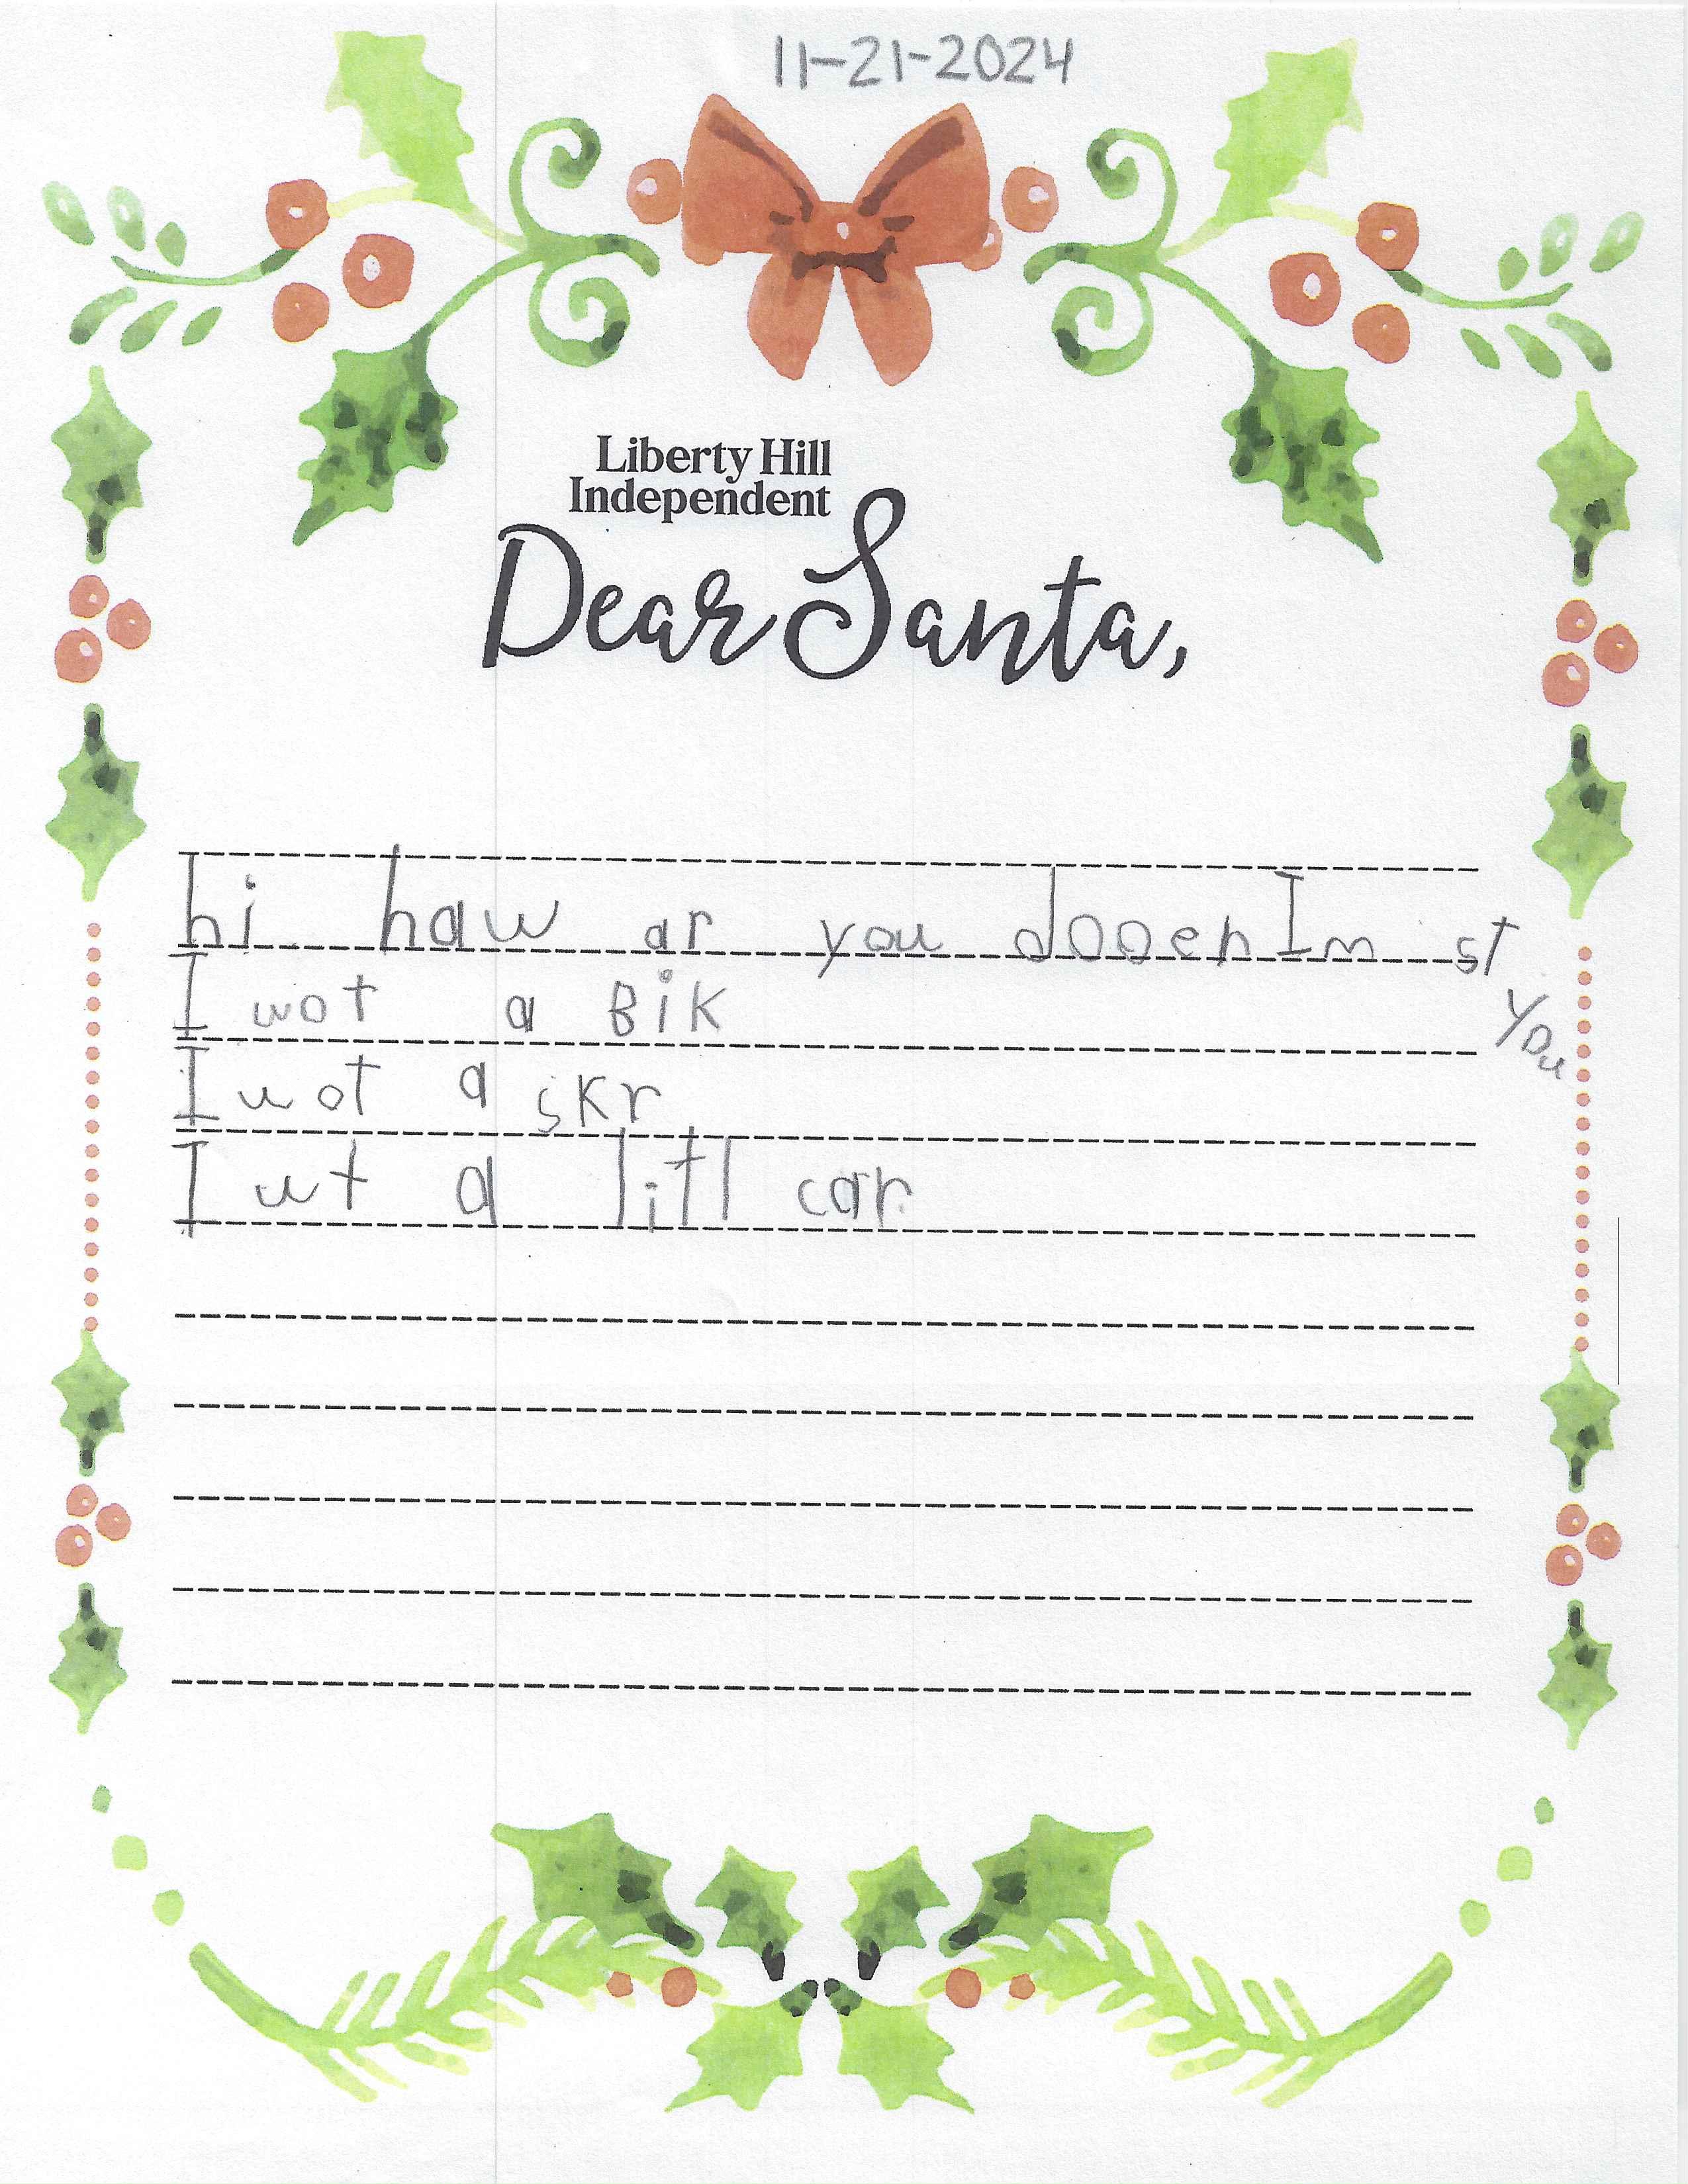 11-21-2024
Liberty Hill
Independent
Dear Santa,
hi haw ar you dooen Im st you
I wot a Bik
I wot a skr
I wt a litl car.